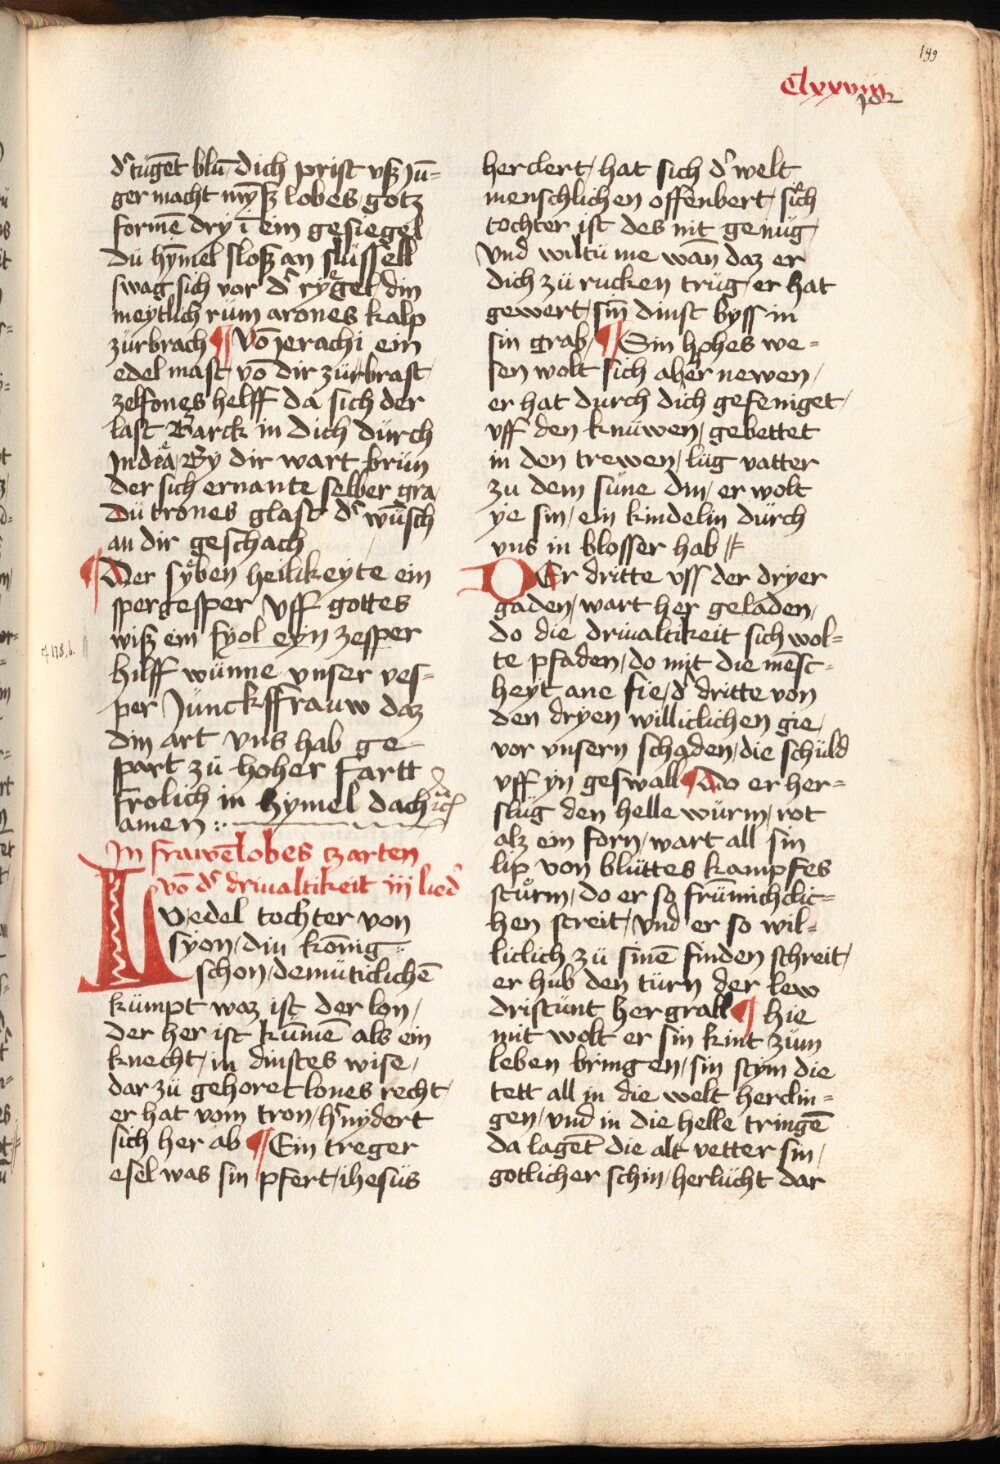 199
Clxxviiij
102
d' tugēt blū dich prist vsz Jū=
ger macht mӯsz lobes gotz
formē dry ī ein gesiegel
du hӯmel slosz an slüssell
swag sich vor d' rẏgel din
meytlich rum arones kalp
zürbrach ¶ Vō Jerachi ein
edel mast vō dir zürbrast
zelfones helff da sich der
last Barck in dich dürch
India, By dir wart brün
der sich ernante selber gra
Dü trones glast d' wūsch
an dir geschach
¶ Der sÿben heilikeyte ein
spergesper Vff gottes
wisz ein fyol eyn zesper
hilff wünne vnser ves=
per Junckffrauw daz
din art vns hab ge=
part zü hoher fartt
frolich in hymel dach
amen
In frawēlobes zarten
vō d' driualtikeit iij lied'
O edel tochter von
syon / din kōnig
schon / demüticlichē
kümpt waz ist der lon /
der her ist kūmē als ein
knecht / in dinstes wise /
dar zü gehoret lones recht /
er hat vom tron / h'nydert
sich her ab ¶ Ein treger
esel was sin pfert / ihesüs
herclert / hat sich d' welt
menschlichen offenbert / sich
tochter ist des nit genüg /
Vnd wiltü me wan daz er
dich zü rucken trüg / er hat
gewert / sin dinst bysz in
sin grab / ¶ Sin hohes we=
sen wolt sich aber newen /
er hat durch dich gefeniget /
vff den knüwen / gebettet
in den trewen / lüg vatter
zu dem süne din / er wolt
ye sin / ein kindelin dürch
vns in blosser hab
DEr dritte vsz der dryer
gaden / wart her geladen /
do die driualtikeit sich wol=
te pfaden / do mit die mēsc=
heyt ane fie / d' dritte von
den dryen williclichen gie /
vor vnsern schaden / die schüld
vff yn geswall ¶ Do er her=
slüg den helle würm / rot
alz ein forn / wart all sin
lip von blüttes kampfes
stürm / do er so frümichclic=
hen streit / Vnd er so wil=
liclich zü sinē finden schreit /
er hub den türn der lew
dristünt her grall ¶ hie
mit wolt er sin kint zün
leben bringen / sin stym die
tett all in die welt herclin=
gen / vnd in die helle tringē
da lagēt die alt vetter sin /
gotlicher schin / herlücht dar